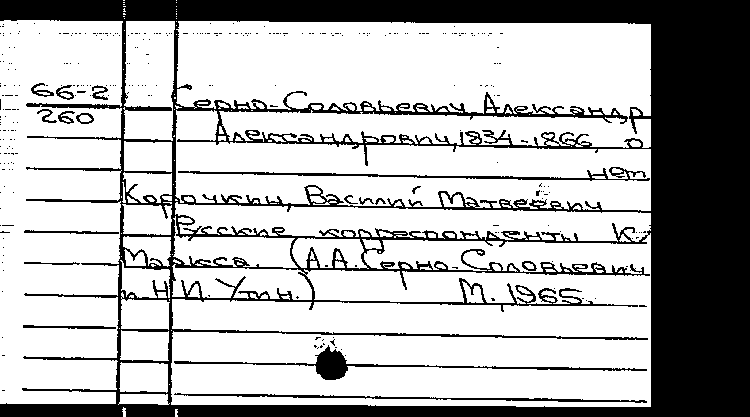 66-2 Серно-Соловьевич, Александр
260 Александрович, 1834-1866, о
нем
Корочкин, Василий Матвеевич
Русские корреспонденты К.
Маркса. (А.А. Серно-Соловьевич
и Н.И. Утин.) М., 1965.